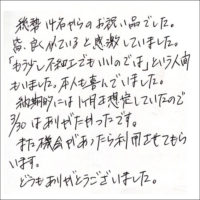 総勢 14名からのお祝い品でした。
皆、良く似ていると感激していました。
「もう少し不細工でもいいのでは」という人間
もいました。本人も喜んでいました。
納期的には1ヶ月を想定していたので
3/30はありがたかったです。
また機会があったら利用させてもら
います。
どうもありがとうございました。